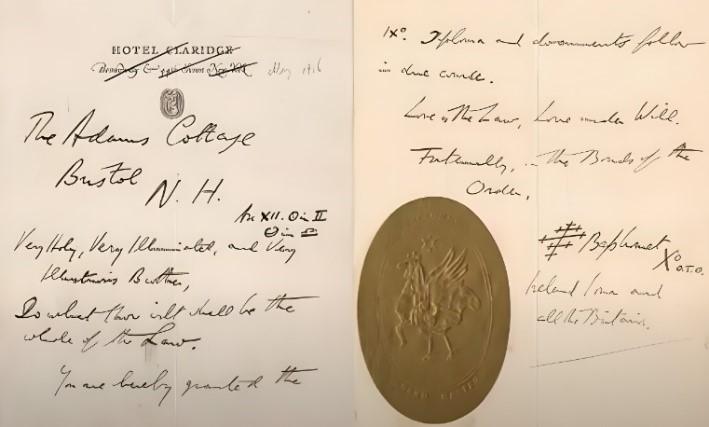 HOTEL CLARIDGE
Broadway & 44th Street New York
May 1916
The Adams Cottage
Bristol N. H.
An XII. ☉ in ♊
Very Holy, Very Illuminated, and Very
Illustrious Brother,
Do what thou wilt shall be the
whole of the Law.
You are hereby granted the
IX°. Diploma and documents follow
in due course.
Love is the Law, Love under Will.
Fraternally, in the Bonds of the
Order,
Baphomet
X° O.T.O.
Ireland Iona and
all the Britains.